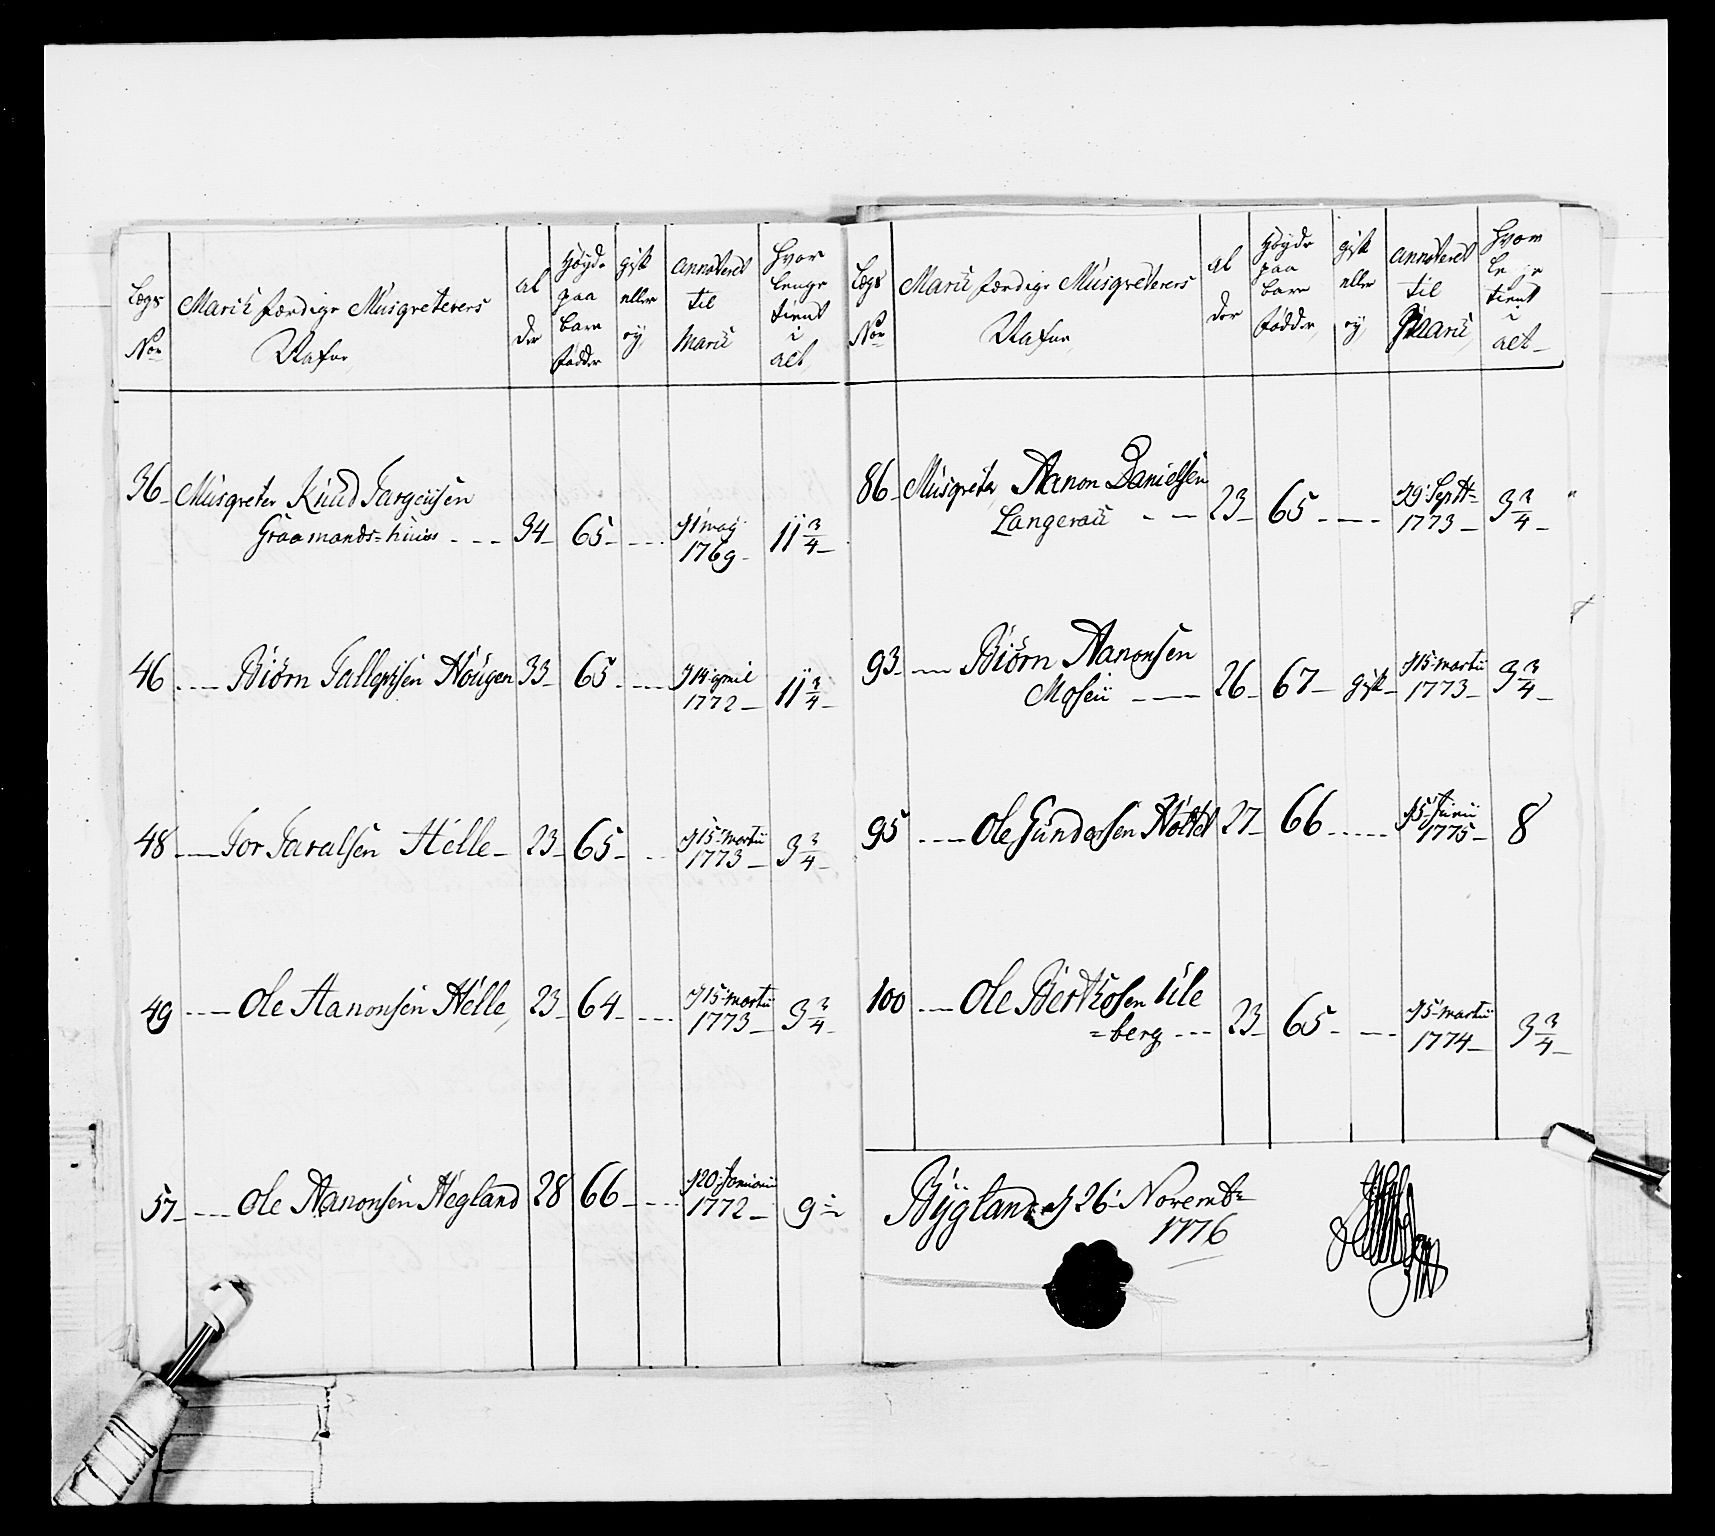 Legs
No
Marck færdige Musqueterers
Nafne
Al
der
Høyde
paa
bare
fødder
gift
eller
ey
annoteret
til
Marti
Hvor
lenge
tient
i
alt
36 Musqueter Knud Targeusen
Graamands=huus --- 34 65 --- 1 may
1769 11 3/4
46 --- Biørn Tallepsen Hougen 33 65 --- 14 april
1772 11 3/4
48 --- Tor Taralsen Helle 23 65 --- 15 Martii
1773 3 3/4
49 --- Ole Aanonsen Helle 23 64 --- 15 Martii
1773 3 3/4
57 --- Ole Aanonsen Hegland 28 66 --- 20 Januarii
1772 9
Legs
No
Marck færdige Musqueterers
Nafne
Al
der
Høyde
paa
bare
fødder
gift
eller
ey
annoteret
til
Marti
Hvor
lenge
tient
i
alt
86 Musqueter Aanon Danielsen
Langerach --- 23 65 --- 29 Septr
1773 3 3/4
93 --- Biørn Aanonsen
Moseii --- 26 67 gift 15 Martii
1773 3 3/4
95 --- Ole Gundersen 27 66 --- 5 Junii
1775 8
100 --- Ole Berthosen Ule
=berg --- 23 65 --- 5 Martii
1774 3 3/4
Bygland d 26 Novembr
1776